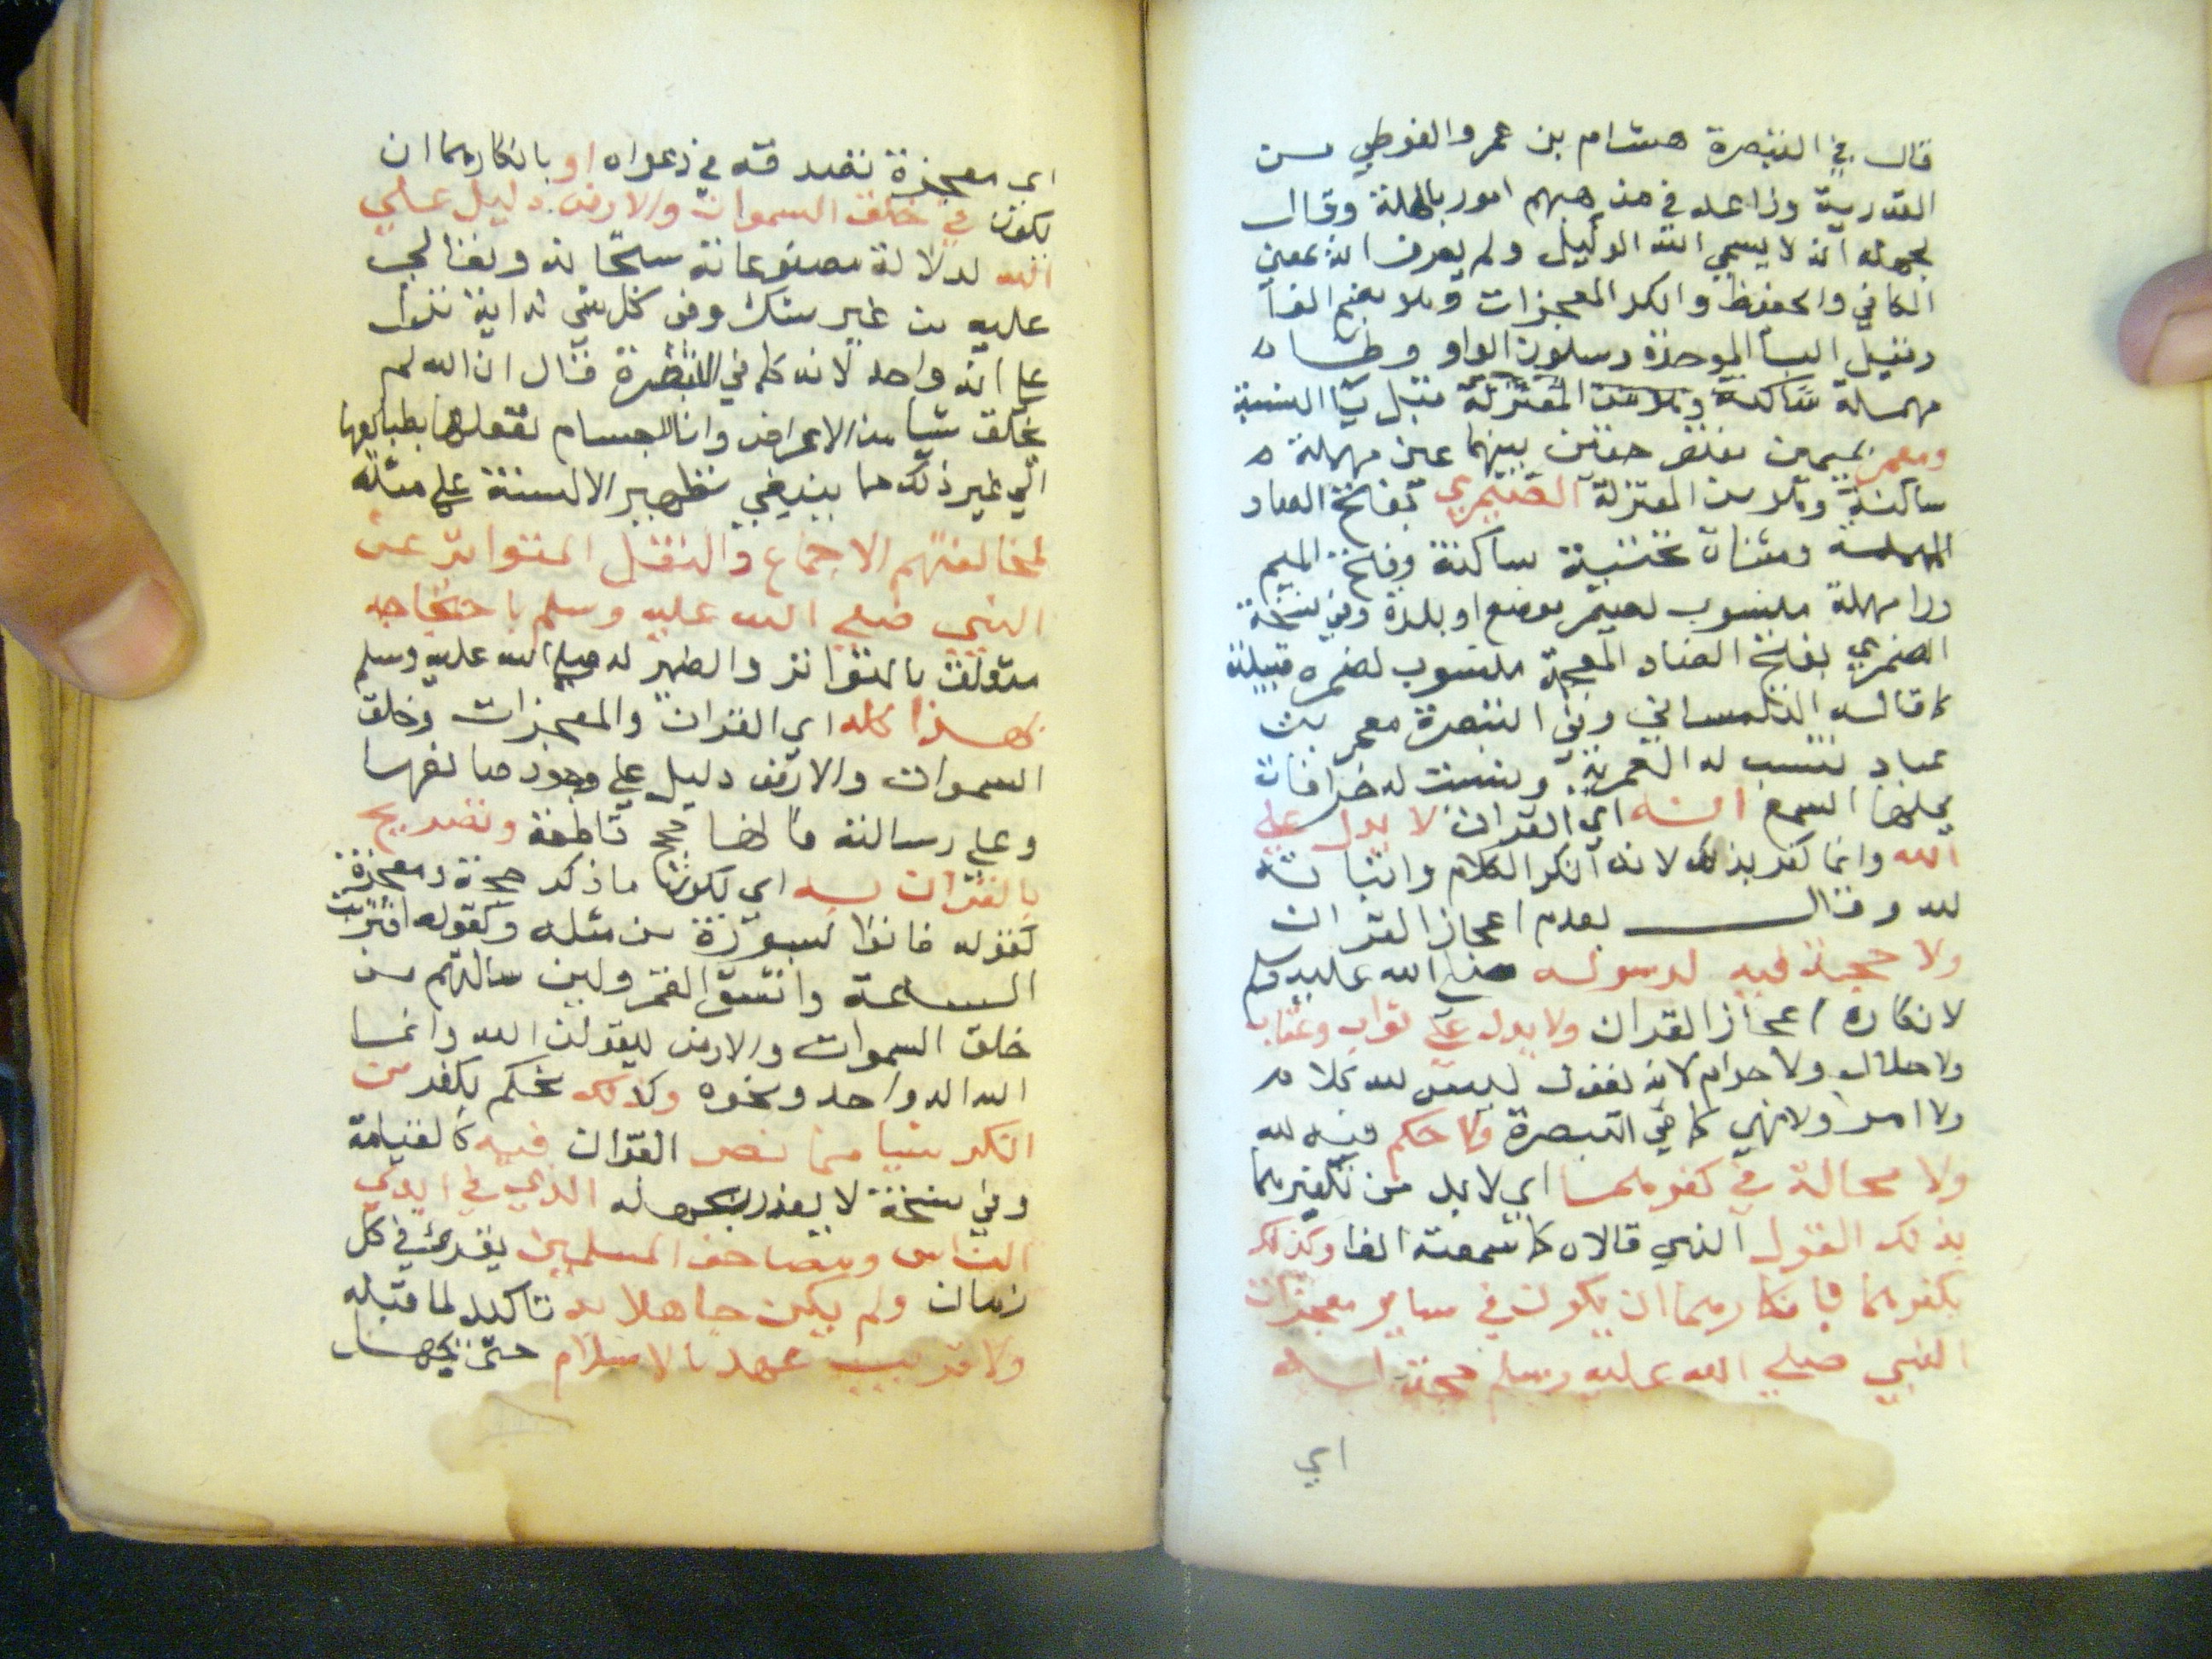 قال في التبصرة هشام بن عمرو الفوطي من
القدرية وزاعه في مذهبهم امور باطلة وقال
بجهله انه لا يسمي الله الوكيل ولم يعرف انه بمعني
الكافي والحفيظ وانكر المعجزات وهو بضم الفآ
وقيل البآ الموحدة وسكون الواو وطآ
مهملة ساكنة وهو من المعتزلة قبل يآ النسبة
ومعمر بميمين مفتوحتين بينهما عين مهملة
ساكنة وهو من المعتزلة الصيمري بفتح الصاد
المهملة ومثناة تحتية ساكنة وفتح الميم
ورا مهملة منسوب لصيمر موضع او بلدة وفي نسخة
الضمري بفتح الضاد المعجمة منسوب لضمره قبيلة
كما قاله التلمساني وفي التبصرة معمر بن
عباد تنسب له المعمرية وينسب له خرافات
يمجها السمع انه اي القران لا يدل علي
الله وانما كفر بذلك لانه انكر الكلام واثباته
لله وقال بعدم اعجاز القران
ولا حجة فيه لرسوله صلي الله عليه وسلم
لانكاره اعجاز القران ولا يدل علي ثواب وعقاب
ولا حلال ولا حرام لانه يقول ليس لله كلام
ولا امر ولا نهي كما في التبصرة ولا حكم فيه لله
ولا محالة في كفرهما اي لا بد من تكفيرهما
بذلك القول الذي قالاه كما سمعته انفا وكذلك
نكفرهما بانكارهما ان يكون في ساير معجزات
النبي صلي الله عليه وسلم حجة له
اي
اي معجزة تصدقه في دعواه او بانكارهما ان
يكون في خلق السموات والارض دليل علي
الله لدلالة مصنوعاته سبحانه وتعالي
عليه من غير شك وفي كل شي له اية تدل
علي انه واحد لانه كما في التبصرة قال ان الله لم
يخلق شيا من الاعراض وان الاجسام تفعلها بطبايعها
الي غير ذلك مما ينبغي تطهير الالسنة علي مثله
لمخالفتهم الاجماع والنقل المتواتر عن
النبي صلي الله عليه وسلم باحتجاجه
متعلق بالمتواتر والضمير له صلي الله عليه وسلم
بهذا كله اي القران والمعجزات وخلق
السموات والارض دليل علي وجود صانعها
وعلي رسالته فانها حجج قاطعة وتصريح
بالقران به اي بكون ما ذكر حجة ومعجزة
كقوله فاتوا بسورة من مثله وكقوله اقتربت
الساعة وانشق القمر ولين سالتهم من
خلق السموات والارض ليقولن الله وانما
الله اله واحد ونحوه وكذلك نحكم بكفر من
انكر شيا مما نص القران فيه كالقيامة
وفي نسخة لا يعذر بجهله الذي في ايدي
الناس ومصاحف المسلمين يقرئ في كل
زمان ولم يكن جاهلا به تاكيد لما قبله
ولا قريب عهد بالاسلام حتي يجهل